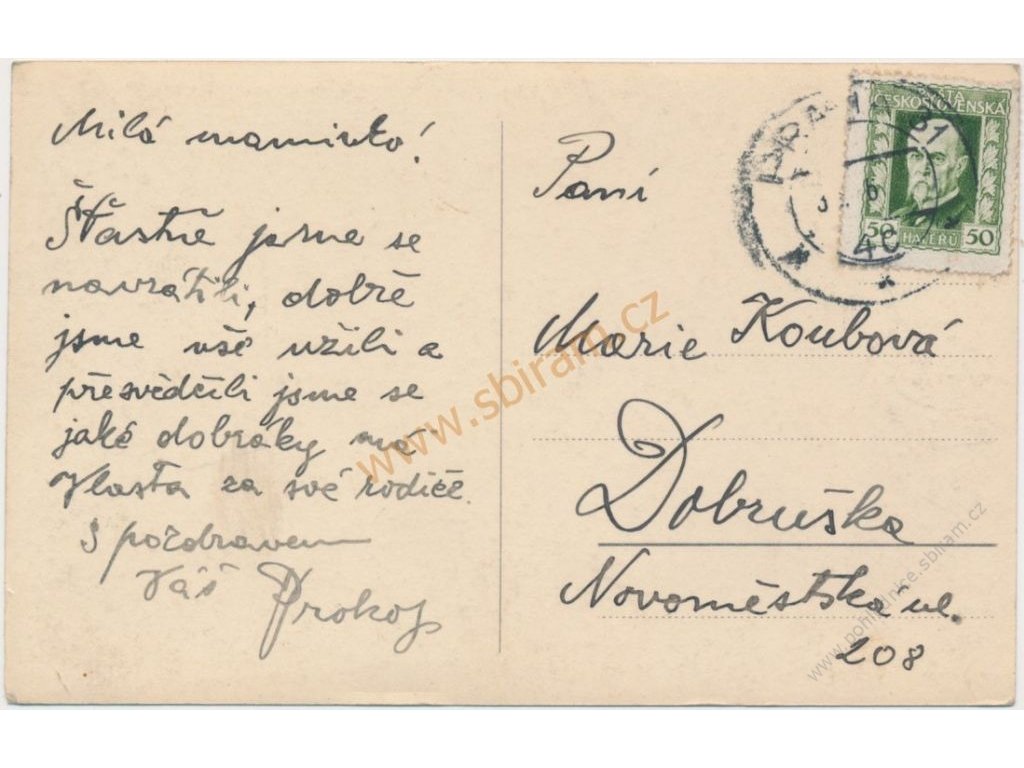 Milá maminko!
Šťastně jsme se
navrátili, dobře
jsme vše užili a
přesvědčili jsme se
jaké dobráky má
Vlasta za své rodiče.
S pozdravem
Váš Prokop
Paní
Marie Koubová
Dobruška
Novoměstská ul.
208
PRAHA 31
ČESKOSLOVENSKÁ
50 HALÉŘŮ 50
www.sbiram.cz
www.pohlednice.sbiram.cz